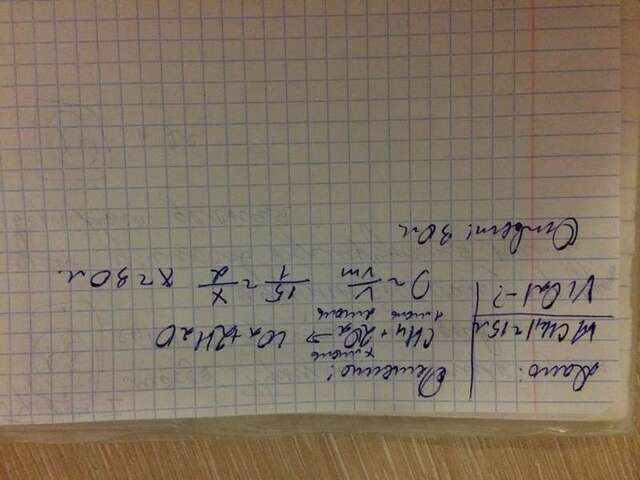 Дано:
V(CH4)=15л
V(O2)-?
Решение:
х моль
CH4 + 2O2 → CO2+2H2O
1 моль 2 моль
V/Vm 15/1 = x/2 x=30л.
Ответ: 30л